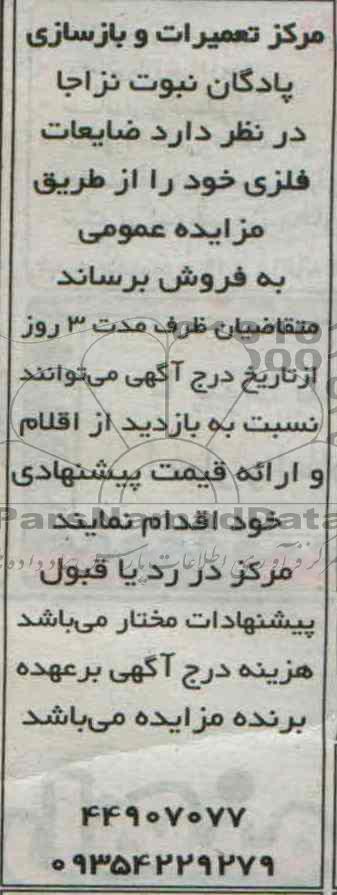 مرکز تعمیرات و بازسازی
پادگان نبوت نزاجا
در نظر دارد ضایعات
فلزی خود را از طریق
مزایده عمومی
به فروش برساند
متقاضیان ظرف مدت ۳ روز
ازتاریخ درج آگهی می‌توانند
نسبت به بازدید از اقلام
و ارائه قیمت پیشنهادی
خود اقدام نمایند
مرکز در رد یا قبول
پیشنهادات مختار می‌باشد
هزینه درج آگهی برعهده
برنده مزایده می‌باشد
۴۴۹۰۷۰۷۷
۰۹۳۵۴۲۲۹۲۷۹